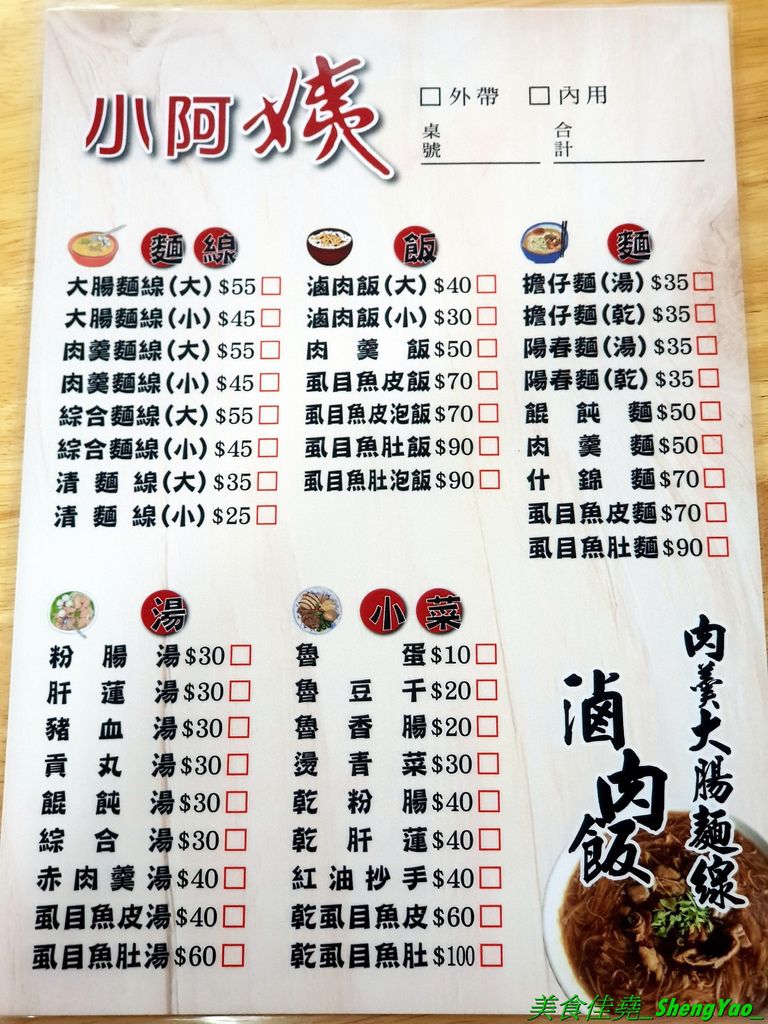 小阿姨
□外帶 □內用
桌號 合計
麵線
大腸麵線(大)$55□
大腸麵線(小)$45□
肉羹麵線(大)$55□
肉羹麵線(小)$45□
綜合麵線(大)$55□
綜合麵線(小)$45□
清麵線(大)$35□
清麵線(小)$25□
飯
滷肉飯(大)$40□
滷肉飯(小)$30□
肉羹飯$50□
虱目魚皮飯$70□
虱目魚皮泡飯$70□
虱目魚肚飯$90□
虱目魚肚泡飯$90□
麵
擔仔麵(湯)$35□
擔仔麵(乾)$35□
陽春麵(湯)$35□
陽春麵(乾)$35□
餛飩麵$50□
肉羹麵$50□
什錦麵$70□
虱目魚皮麵$70□
虱目魚肚麵$90□
湯
粉腸湯$30□
肝蓮湯$30□
豬血湯$30□
貢丸湯$30□
餛飩湯$30□
綜合湯$30□
赤肉羹湯$40□
虱目魚皮湯$40□
虱目魚肚湯$60□
小菜
魯蛋$10□
魯豆干$20□
魯香腸$20□
燙青菜$30□
乾粉腸$40□
乾肝蓮$40□
紅油抄手$40□
乾虱目魚皮$60□
乾虱目魚肚$100□
肉羹大腸麵線
滷肉飯
美食佳堯_ShengYao_